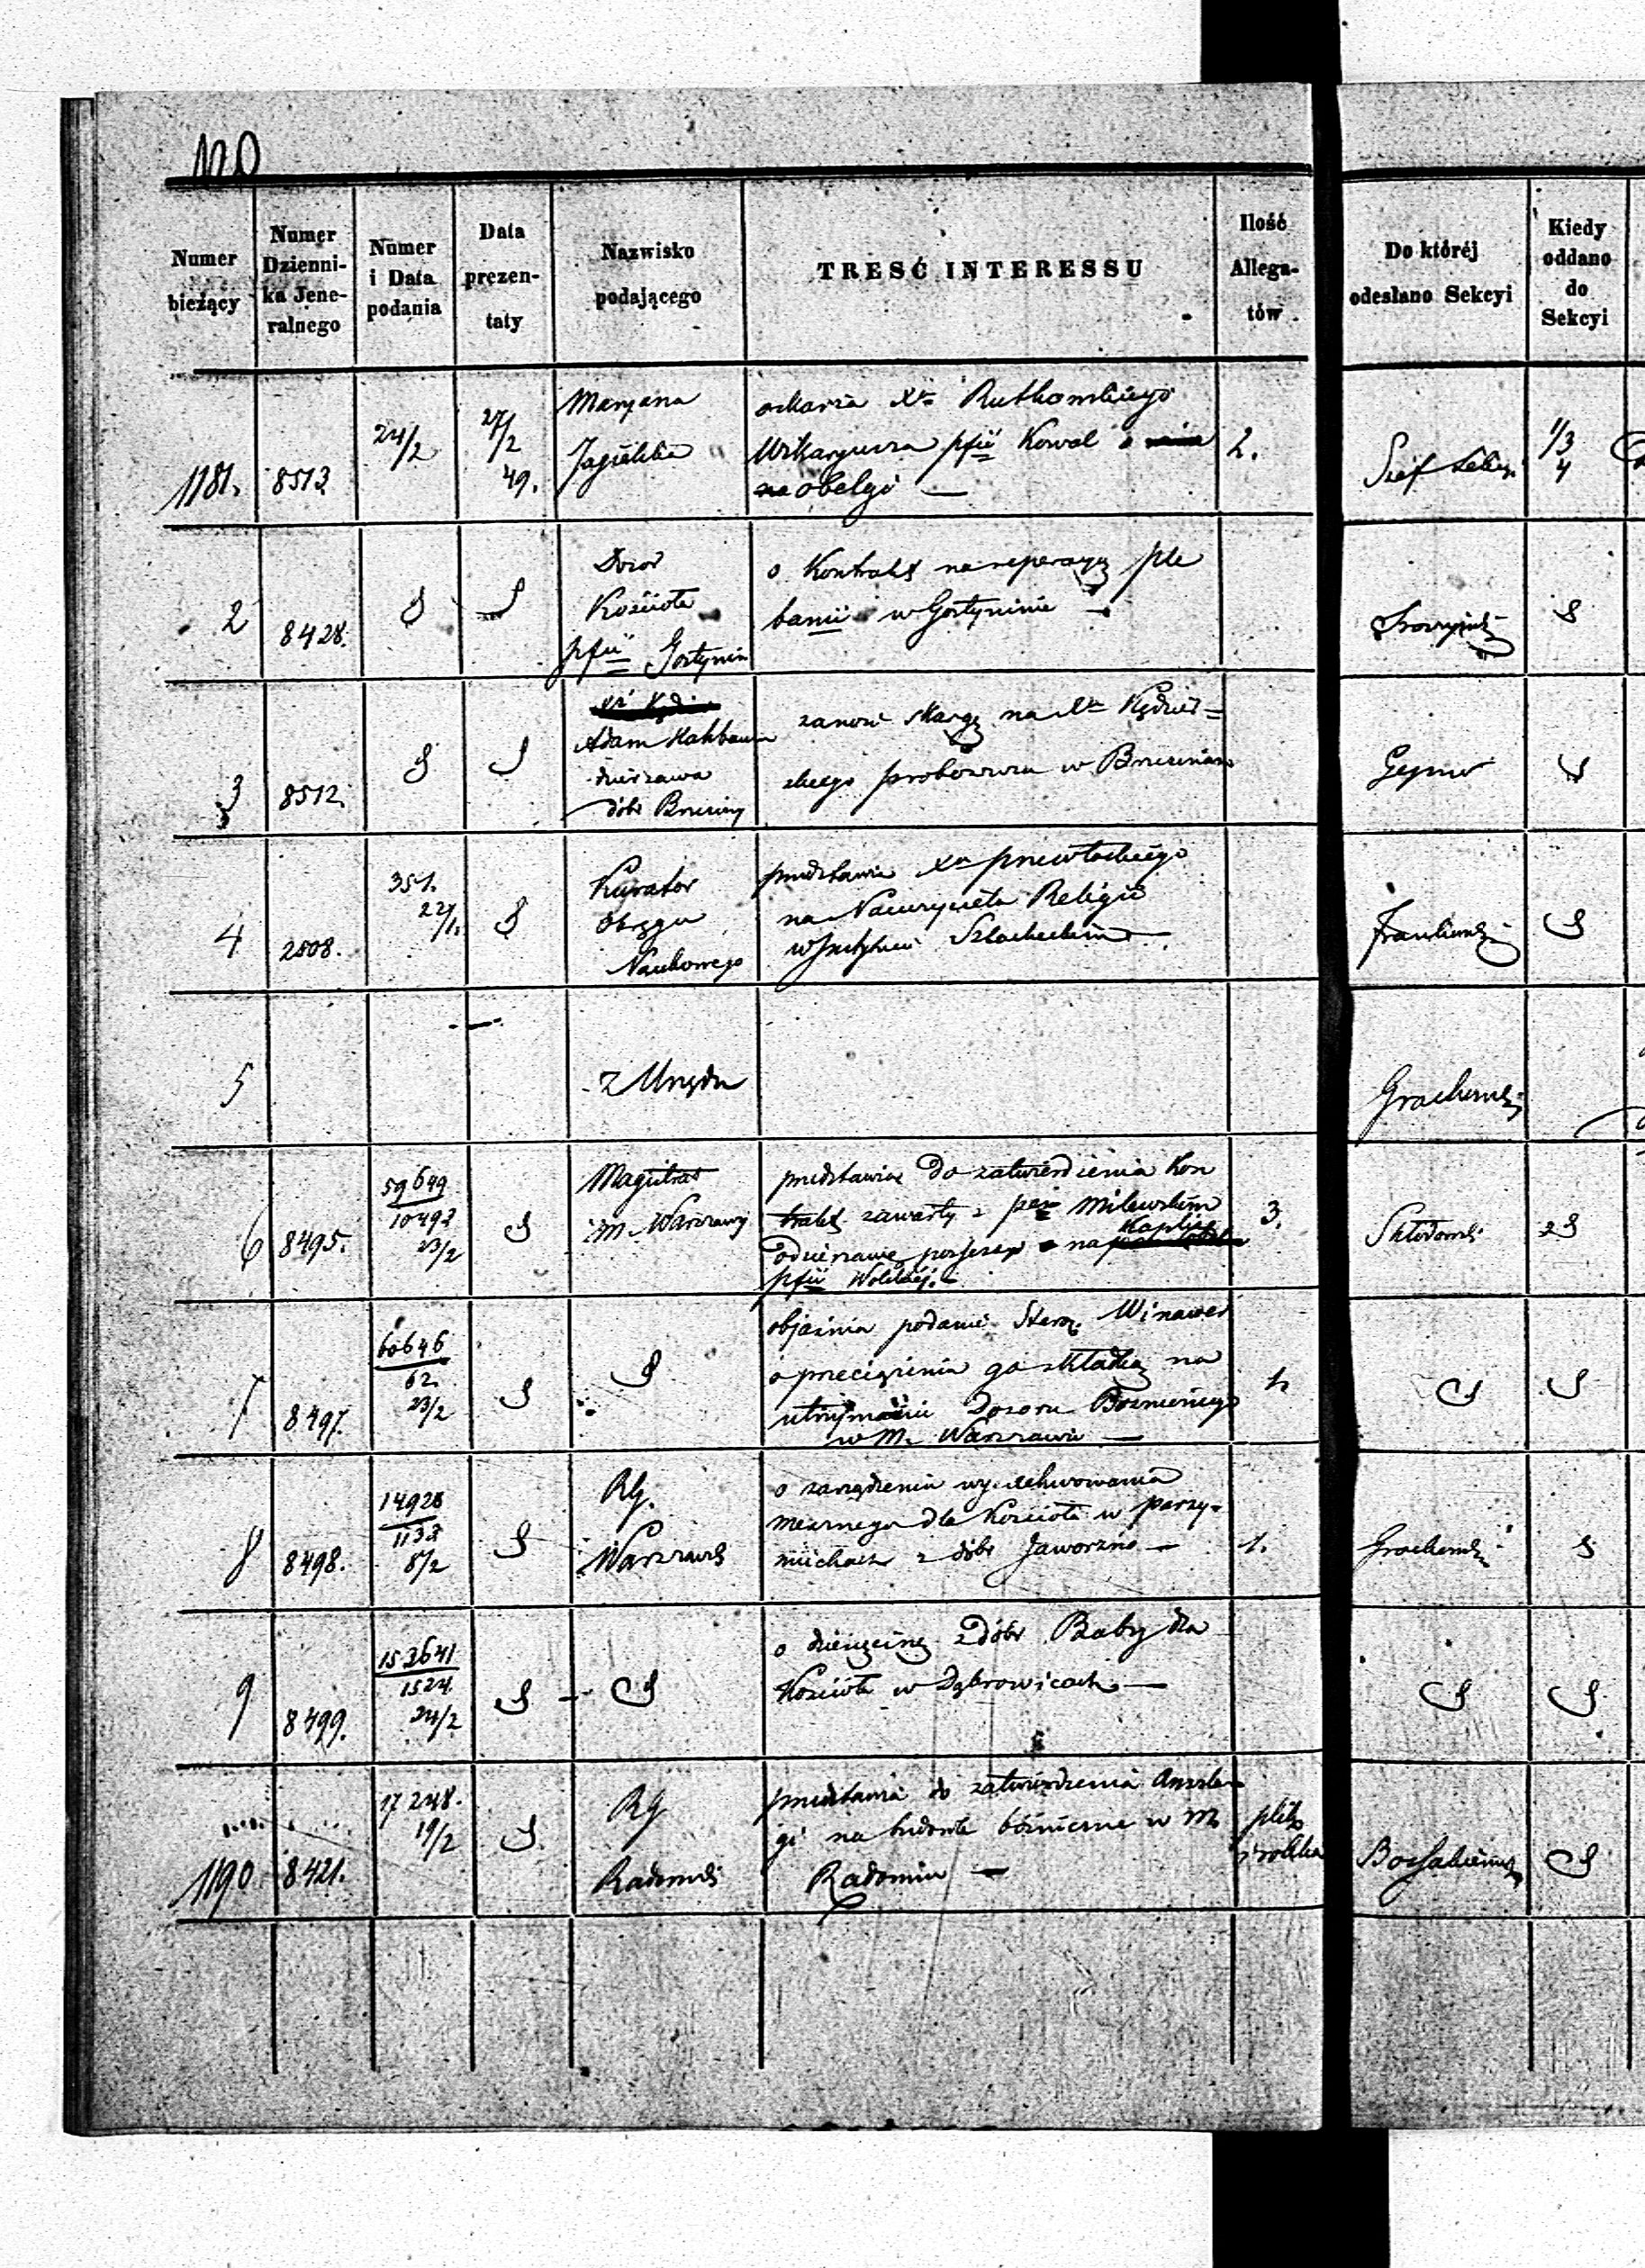 120
Numer bieżący
Numer Dzienni-ka Jene-ralnego
Numer i Data podania
Data prezen-taty
Nazwisko podającego
TRESĆ INTERESSU
Ilość Allega-tów
Do któréj odesłano Sekcyi
Kiedy oddano do Sekcyi
1181. 8513 24/2 27/2 49.
Maryana
Jagielska
oskarża Xa Rutkowskiego
Wikaryusza pfii Kowal o
obelgi —
2.
Szef
1/3 4
2 8428. S S
Dozor
Kościoła
pfii Gostynin
o Kontrakt na reperacyę ple
banii w Gostyninie —
S
3 8512. S S
Adam
dzierzawca
dóbr Brzeziny
zanosi skargę na Xa
skiego proboszcza w
S
4 2508. 351. 22/1. S
Kurator
Okręgu
Naukowego
przedstawia Xa przewłockiego
na Nauczyciela Religii
w Instytucie Szlacheckim —
S
5
z Urzędu
6 8495. 59699 10493 23/2 S
Magistrat
m. Warszawy
przedstawia do zatwierdzenia Kon
trakt zawarty z Milewskim
o dzierzawę na Kaplicę
pfii Wolskiej. —
3.
S
7 8497. 60646 62. 23/2 S S
objaśnia podanie Winawer
o przeciążenia go składką na
utrzymanie Dozoru Bożniczego
w M. Warszawie —
1.
S S
8 8498. 14928 1133 8/2 S
RG.
Warszawski
o zarządzenie wyexekwowania
mesznego dla Kościoła w parzy-
miechach z dóbr Jaworzno —
1.
S
9 8499. 153641 1524 24/2 S S
o dziesięcinę z dóbr Baby dla
Kościoła w Dąbrowicach —
S S
1190 8421. 17248. 19/2 S.
RG
Radomski
przedstawia do zatwierdzenia Anszla
gi na budowle bóżnicze w M
Radomiu —
S